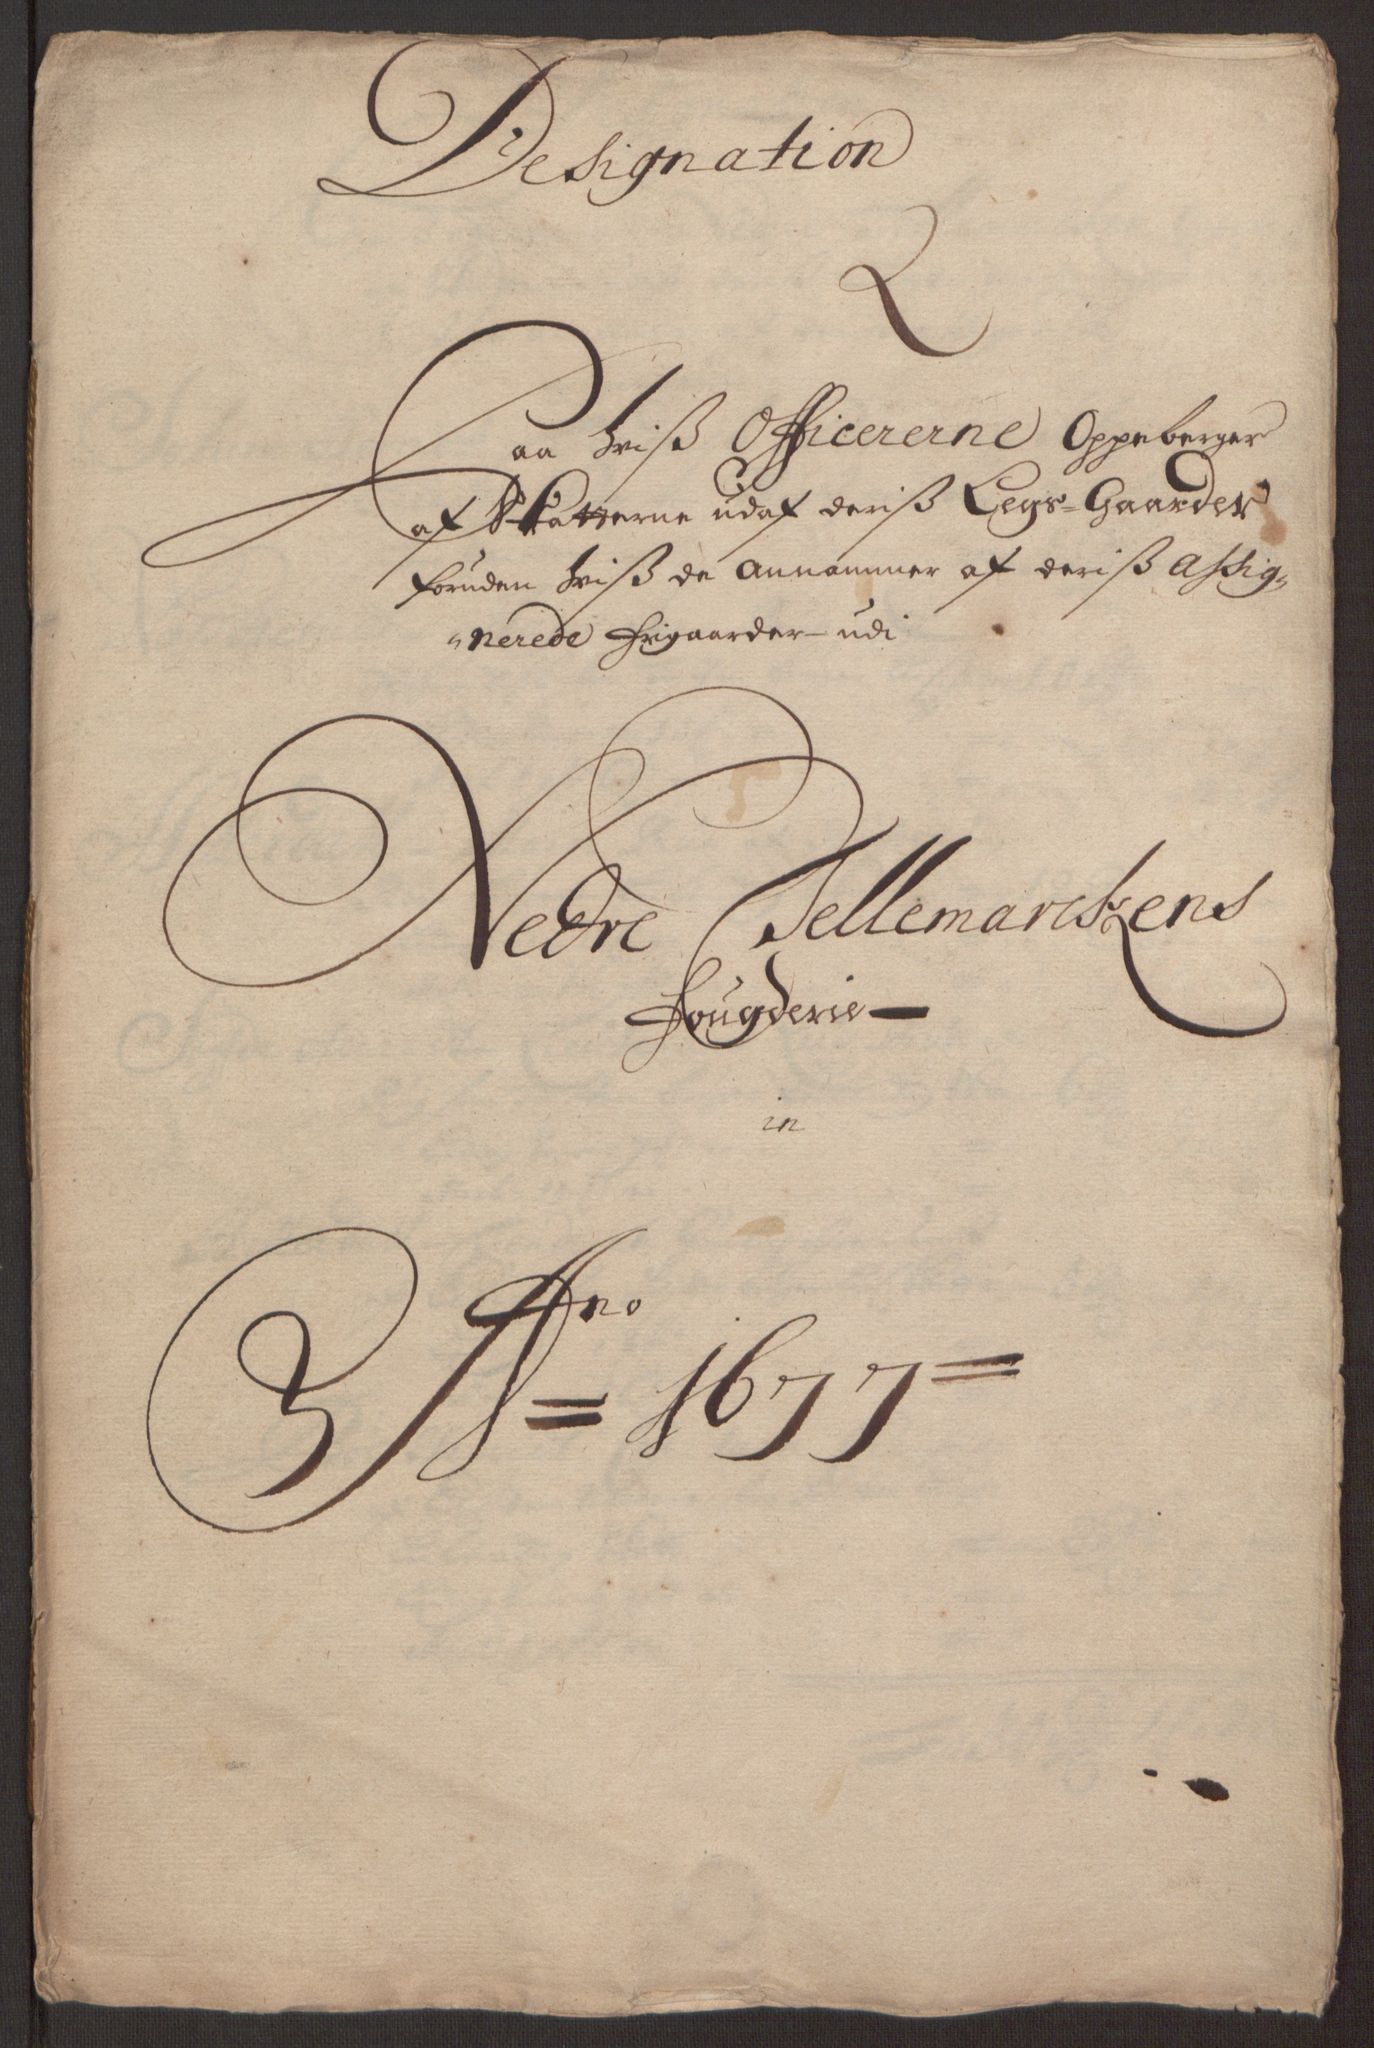 Designation
Paa hviß Officererne Oppeberger
af Skatterne udaf deriß Legs=Gaarder
foruden hviß de Annammer af deriß Assig=
=nerede Frigaarder udi
Nedre Tellemarckens
Fougderie
in
Ano
= 1677 =